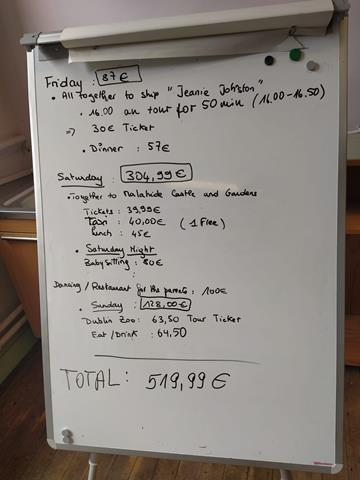 Friday : 87€
• All together to ship "Jeanie Johnston"
• 16.00 an tour for 50 min (16.00-16.50)
⇒ 30€ Ticket
• Dinner : 57€
Saturday : 304,99€
• Together to Malahide Castle and Gardens
Tickets : 39,99€
Taxi : 40,00€ (1 Free)
Lunch : 45€
• Saturday Night
Babysitting : 80€
Dancing / Restaurant for the parents : 100€
• Sunday : 128,00€
Dublin Zoo : 63,50 Tour Ticket
Eat /Drink : 64,50
TOTAL : 519,99 €